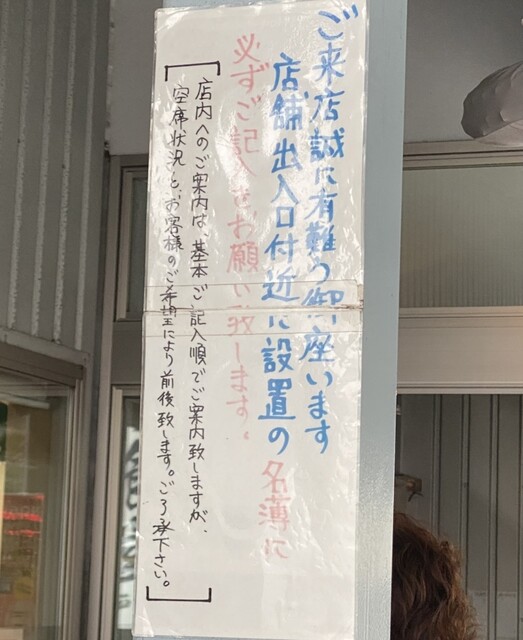 ご来店誠に有難う御座います
店舗出入口付近に設置の名薄に
必ずご記入をお願い致します。
店内へのご案内は、基本ご記入順でご案内致しますが、
空席状況と、お客様のご希望により前後致します。ご了承下さい。